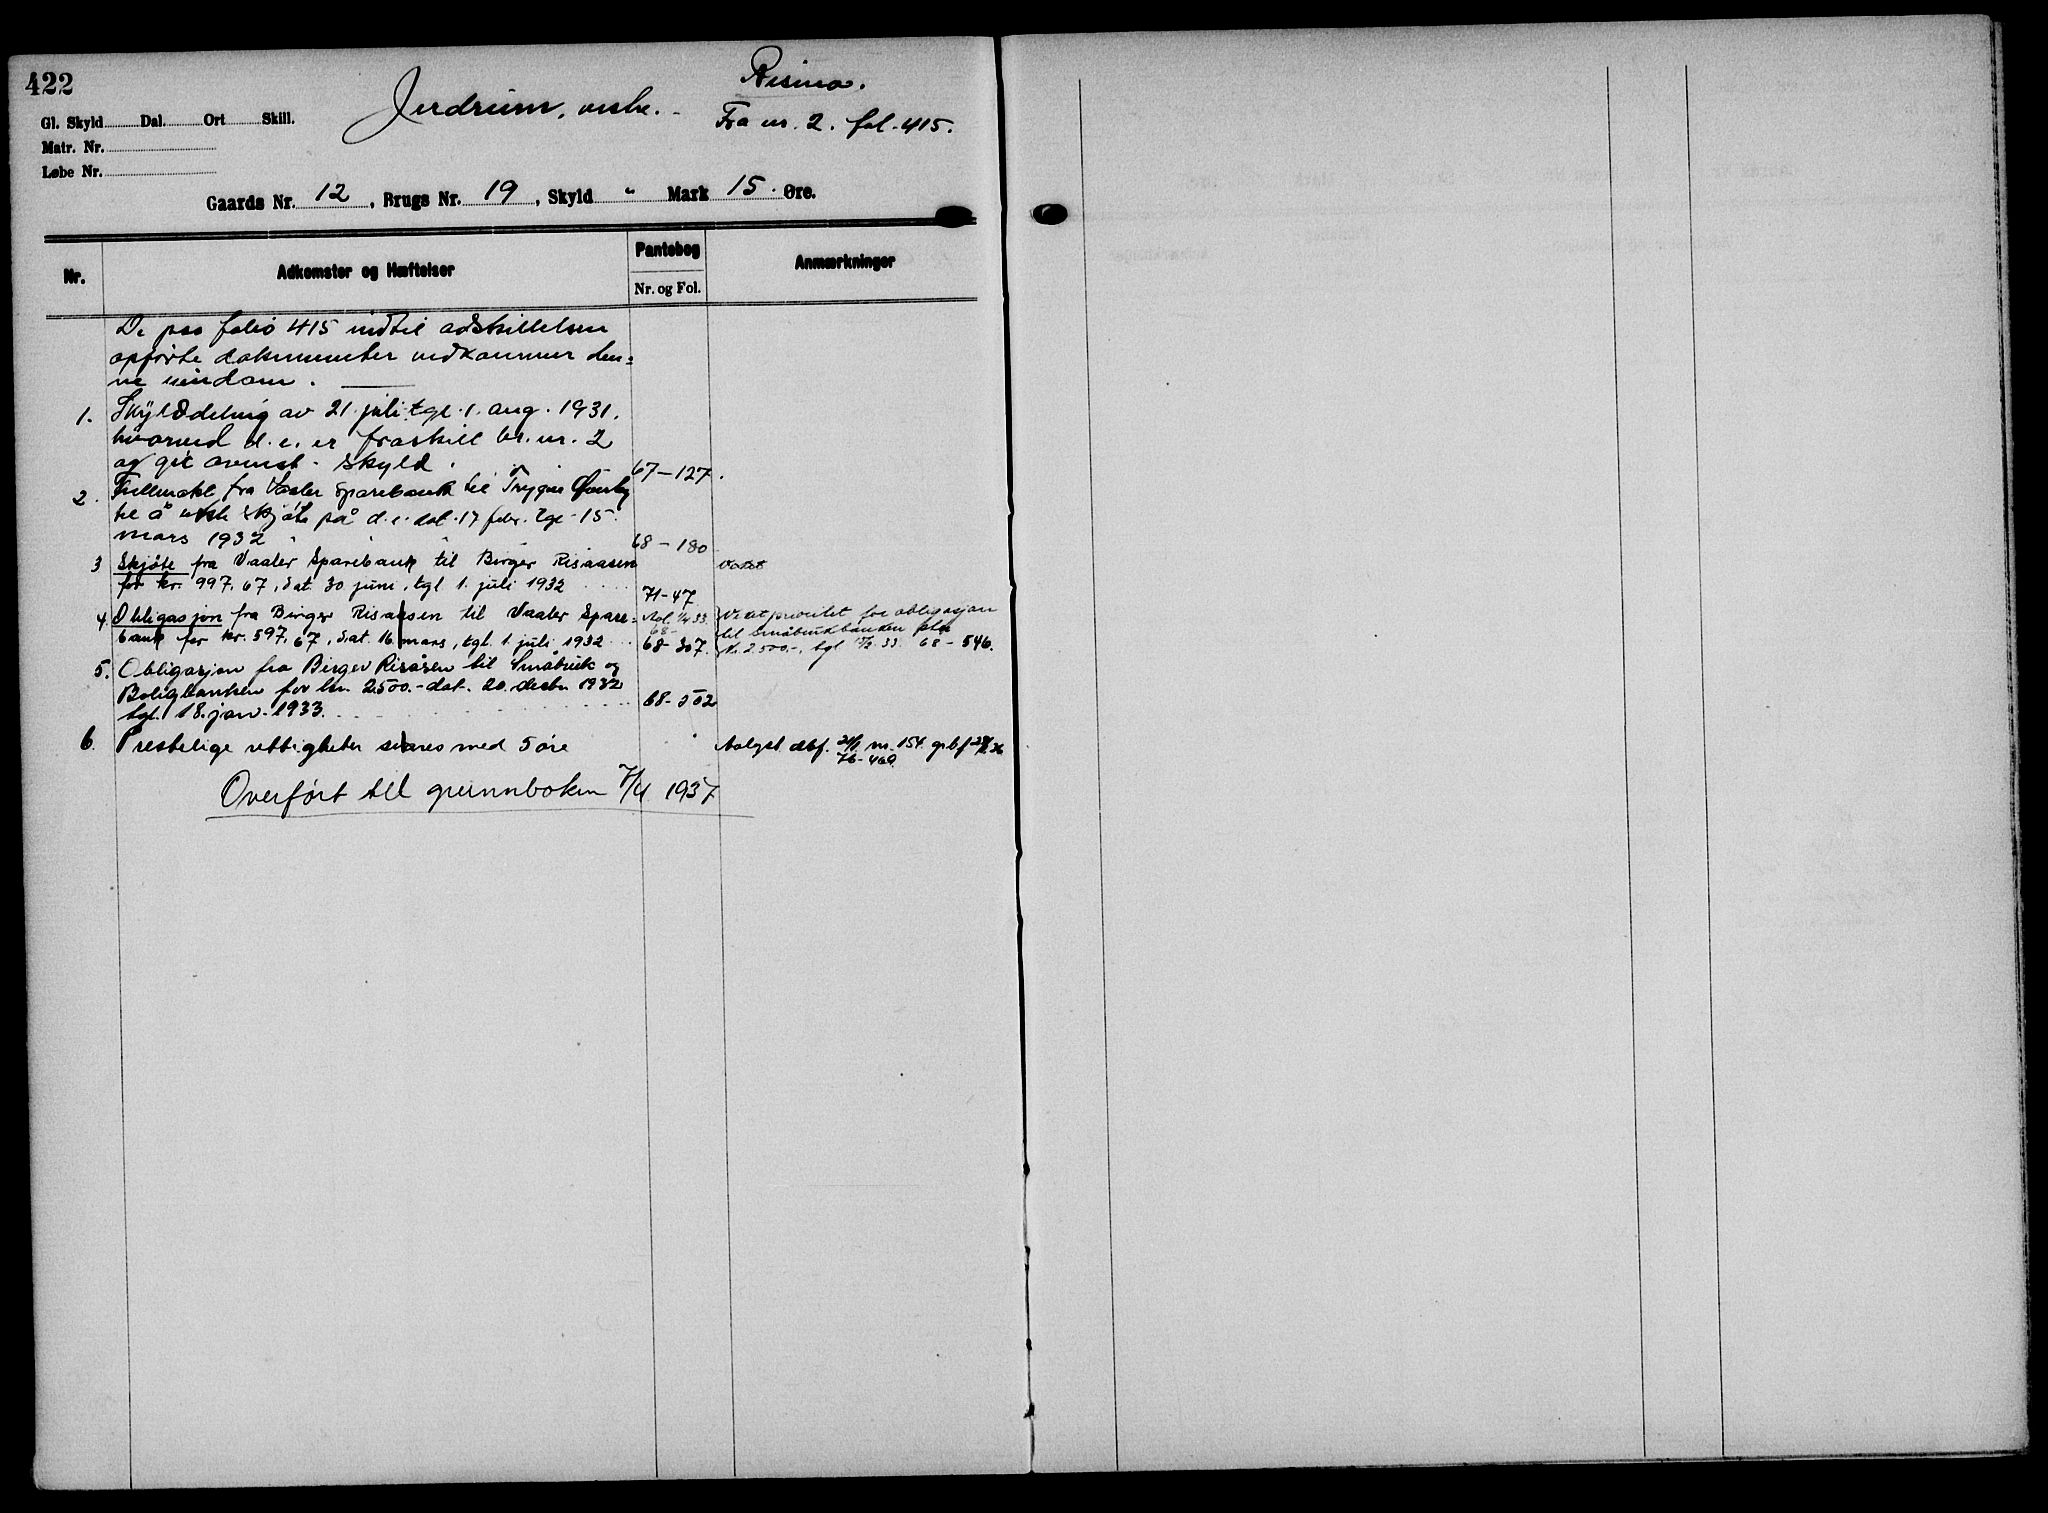 422
Gl. Skyld Dal. Ort Skill.
Matr. Nr.
Løbe Nr.
Jerdrum, vestre. -
Rismo.
Fra nr. 2. fol. 415.
Gaards Nr. 12, Brugs Nr. 19, Skyld " Mark 15. Øre.
Nr.
Adkomster og Hæftelser
Pantebog
Nr. og Fol.
Anmærkninger
De paa folio 415 indtil adskillelsen
opførte dokumenter vedkommer den=
ne eiendom.
1. Skylddeling av 21. juli tgl. 1. aug. 1931.
hvorved d. e. er fraskilt br. nr. 2
og git ovenst. skyld. 67-127.
2. Fullmakt fra Vaaler Sparebank til Trygve
til å utste skjøte på d. e. dat. 17 febr. tgl. 15.
mars 1932 68-180
3 Skjøte fra Vaaler Sparebank til Birger Risaasen
for kr. 997,67, dat. 30 juni, tgl 1. juli 1932 71-47
4. Obligasjon fra Birger Risaasen til Vaaler Spare=
bank for kr. 597,67, dat. 16 mars, tgl. 1. juli 1932 68-307.
Veket prioritet for obligasjon
til småbrukbanken
kr. 2.500.-, tgl 33. 68-546.
5. Obligasjon fra Birger Risåsen til Småbruk og
Boligbanken for kr. 2500.- dat. 20. desbr. 1932
tgl. 18. jan. 1933. 68-502
6. Prestelige rettigheter svares med 5 øre
Avlyst dbf. nr. 154.
76-460.
Overført til grunnboken 7/4 1937